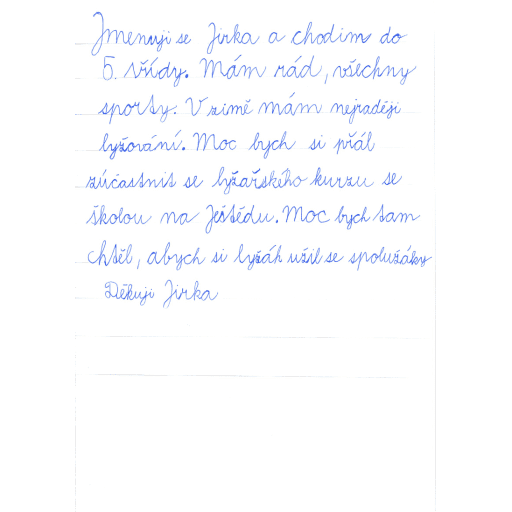 Jmenuji se Jirka a chodim do
5. třídy. Mám rád, všechny
sporty. V zimě mám nejraději
lyžování. Moc bych si přál
zúčastnit se lyžařského kurzu se
školou na Ještědu. Moc bych tam
chtěl, abych si lyžák užil se spolužáky
Děkuji Jirka